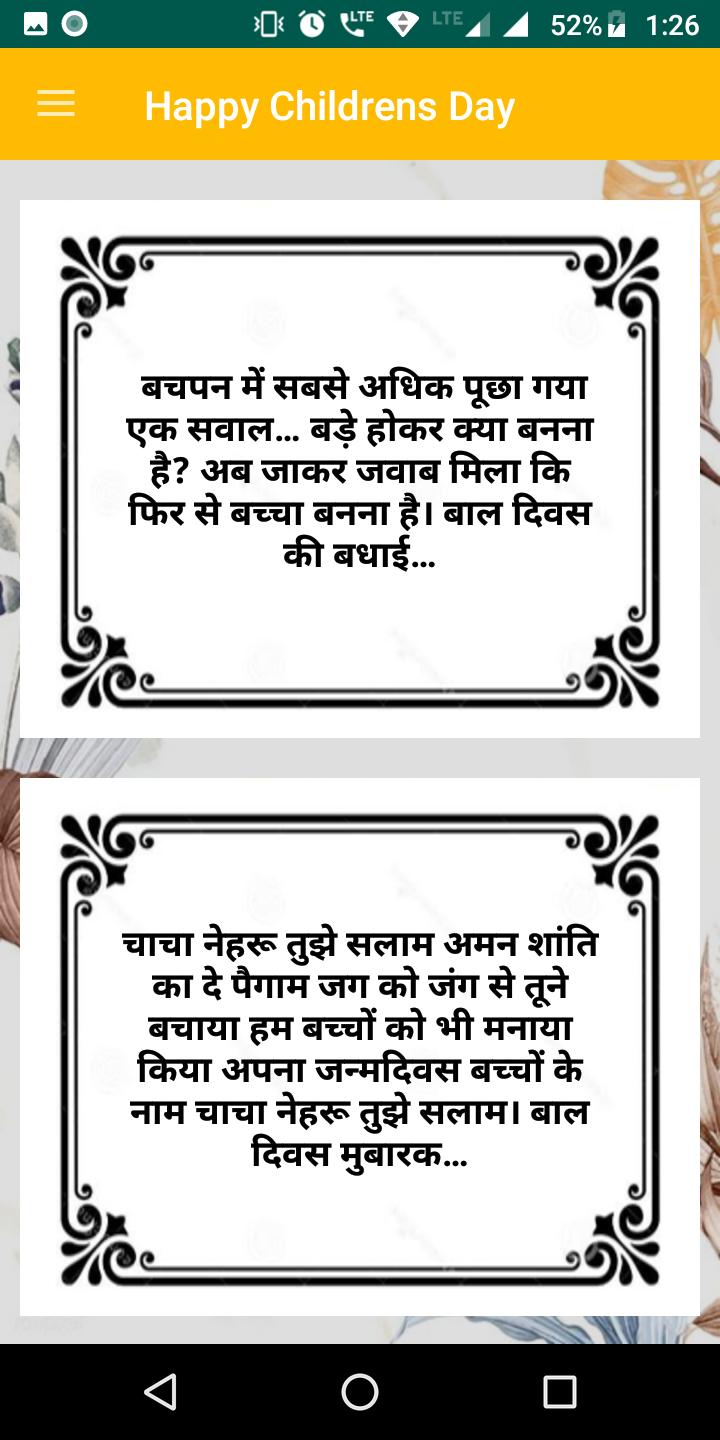 LTE LTE 52% 1:26
Happy Childrens Day
बचपन में सबसे अधिक पूछा गया
एक सवाल... बड़े होकर क्या बनना
है? अब जाकर जवाब मिला कि
फिर से बच्चा बनना है। बाल दिवस
की बधाई...
चाचा नेहरू तुझे सलाम अमन शांति
का दे पैगाम जग को जंग से तूने
बचाया हम बच्चों को भी मनाया
किया अपना जन्मदिवस बच्चों के
नाम चाचा नेहरू तुझे सलाम। बाल
दिवस मुबारक...